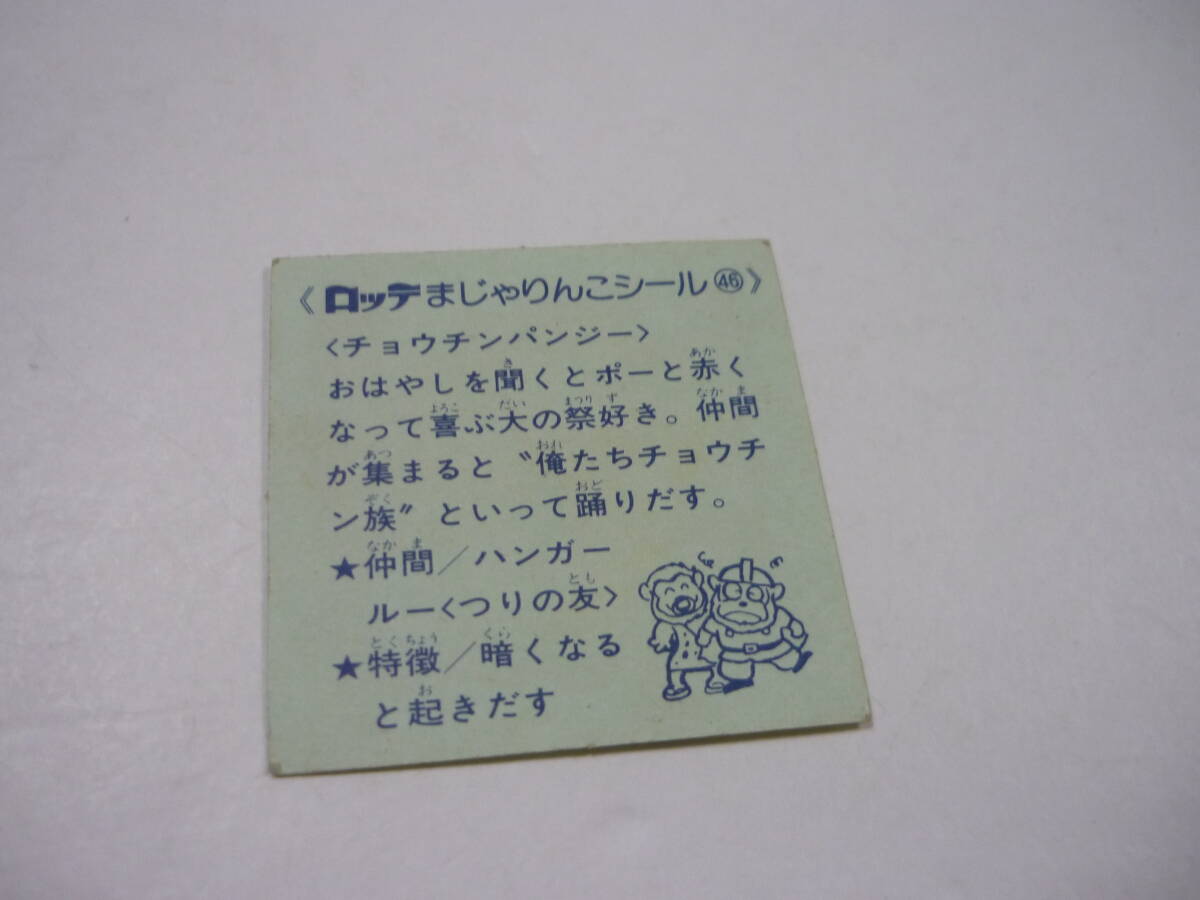 《ロッテまじゃりんこシール㊻》
〈チョウチンパンジー〉
おはやしを聞くとポーと赤く
なって喜ぶ大の祭好き。仲間
が集まると〝俺たちチョウチ
ン族〟といって踊りだす。
★仲間/ハンガー
ルー〈つりの友〉
★特徴/暗くなる
と起きだす